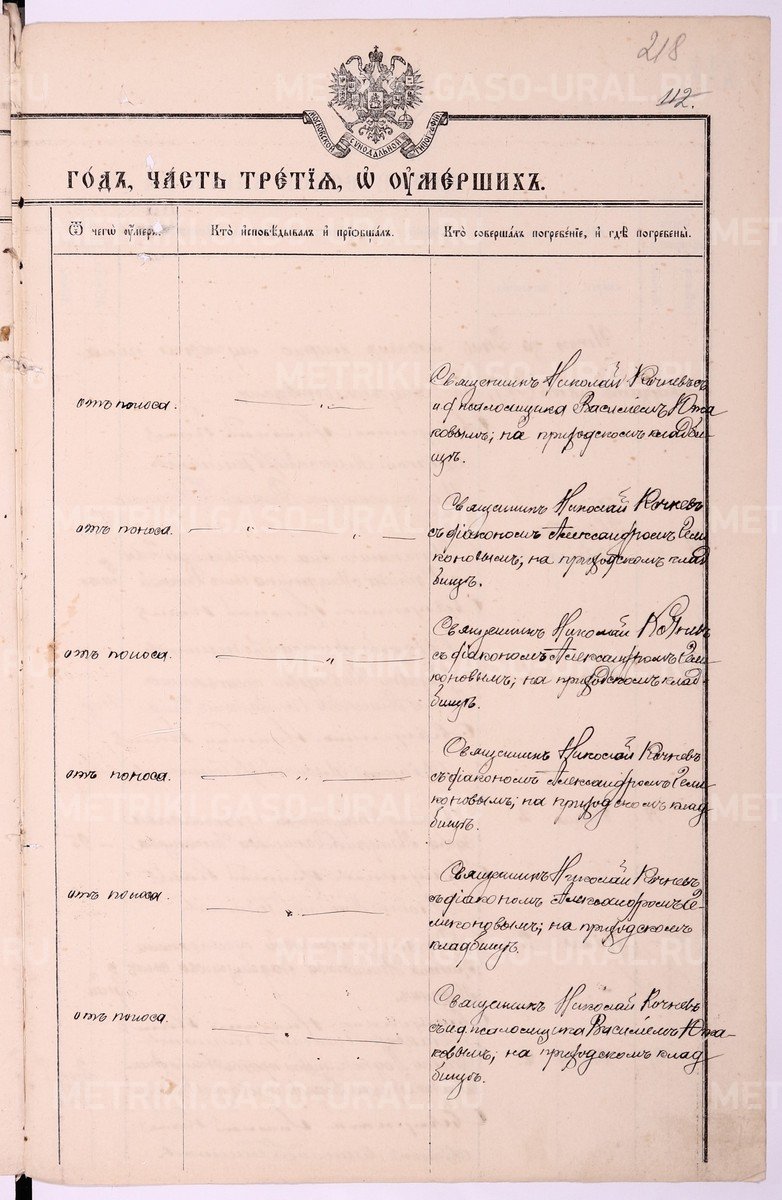 218
112.
МОСКОВСКОЙ СѴНОДАЛЬНОЙ ТИПОГРАФІИ
ГО́ДЪ, ЧА́СТЬ ТРЕ́ТІѦ, Ѡ҆ ОУ҆МЕ́РШИХЪ.
Ѿ чегѡ̀ оу҆́меръ.
Кто̀ и҆сповѣ́дывалъ и҆ прїѻбща́лъ.
Кто̀ соверша́лъ погребе́нїе, и҆ гдѣ̀ погребены̀.
отъ поноса.
Священникъ Николай Кочневъ съ
и д псаломщика Василіемъ Южа
ковымъ; на приходскомъ кладби-
щѣ.
отъ поноса.
Священникъ Николай Кочневъ
съ діакономъ Александромъ
коновымъ; на приходскомъ клад
бищѣ.
отъ поноса.
Священникъ Николай Кочневъ
съ діакономъ Александромъ
коновымъ; на приходскомъ клад-
бищѣ.
отъ поноса.
Священникъ Николай Кочневъ
съ діакономъ Александромъ
коновымъ; на приходскомъ клад
бищѣ.
отъ поноса.
Священникъ Николай Кочневъ
съ діакономъ Александромъ
на приходскомъ
кладбищѣ.
отъ поноса.
Священникъ Николай Кочневъ
съ и д псаломщика Василіемъ Южа-
ковымъ; на приходскомъ клад
бищѣ.
METRIKI.GASO-URAL.RU